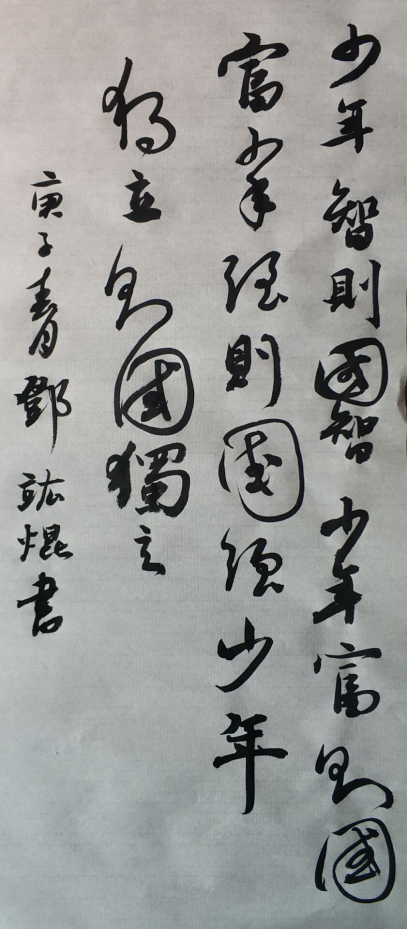 少年智則國智少年富則國
富少年强則國强少年
獨立則國獨立
庚子春月鄧竑焜書